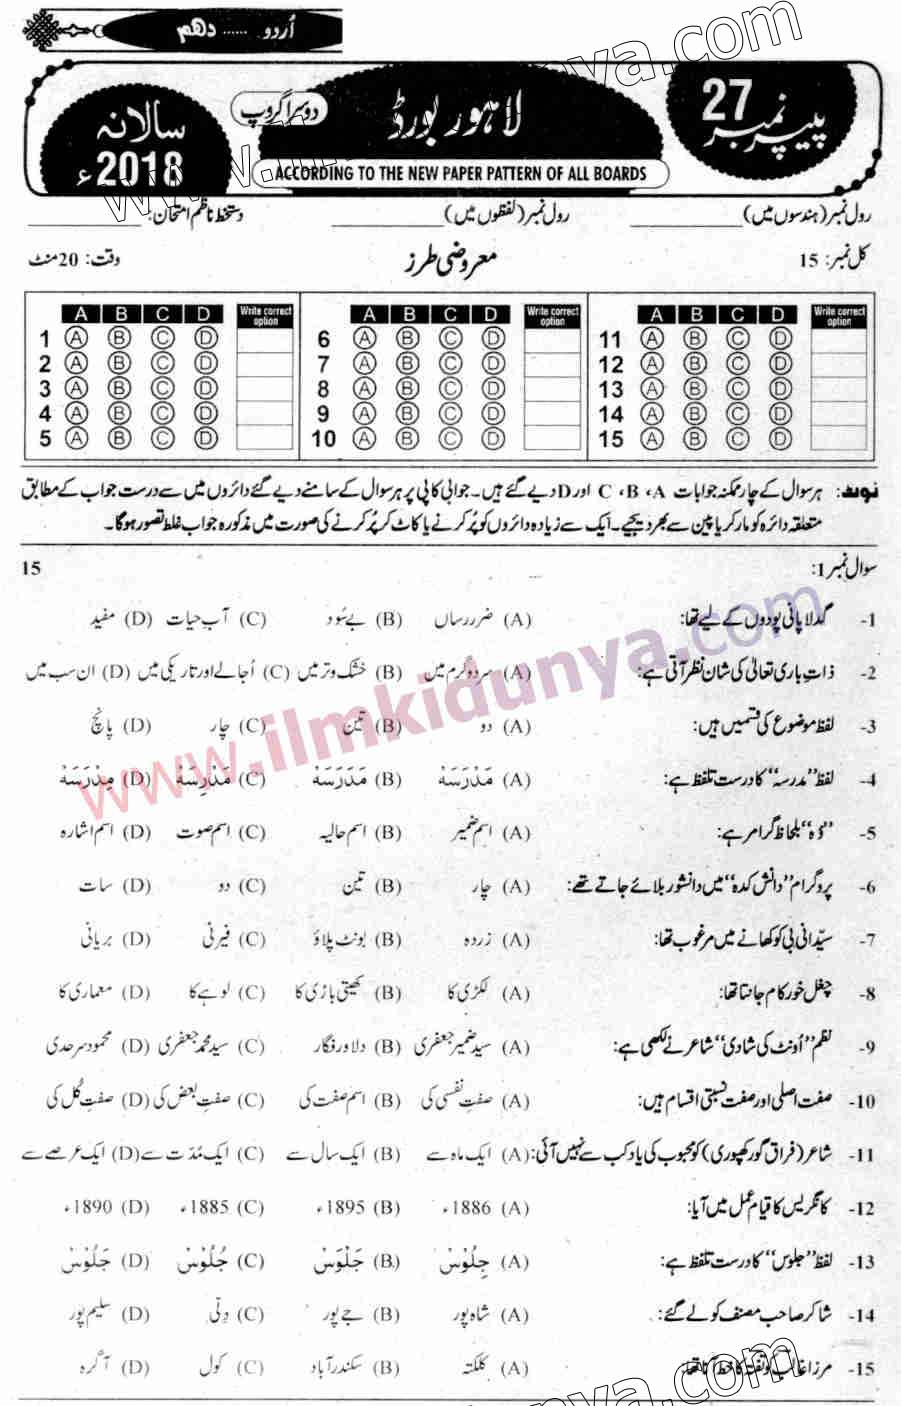 اُردو ...... دھم
پیپر نمبر 27
لاہور بورڈ
دوسرا گروپ
سالانہ 2018ء
ACCORDING TO THE NEW PAPER PATTERN OF ALL BOARDS
رول نمبر (ہندسوں میں) ________ رول نمبر (لفظوں میں) ________ دستخط ناظم امتحان: ________
کل نمبر: 15 معروضی طرز وقت: 20 منٹ
A B C D Write correct option A B C D Write correct option A B C D Write correct option
1 A B C D 6 A B C D 11 A B C D
2 A B C D 7 A B C D 12 A B C D
3 A B C D 8 A B C D 13 A B C D
4 A B C D 9 A B C D 14 A B C D
5 A B C D 10 A B C D 15 A B C D
نوٹ: ہر سوال کے چار ممکنہ جوابات A، B، C اور D دیے گئے ہیں۔ جوابی کاپی پر ہر سوال کے سامنے دیے گئے دائروں میں سے درست جواب کے مطابق
متعلقہ دائرہ کو مارکر یا پین سے بھر دیجیے۔ ایک سے زیادہ دائروں کو پُر کرنے یا کاٹ کر پُر کرنے کی صورت میں مذکورہ جواب غلط تصور ہوگا۔
سوال نمبر 1: 15
1- گدلا پانی پودوں کے لیے تھا: (A) ضرر رساں (B) بے سُود (C) آبِ حیات (D) مفید
2- ذاتِ باری تعالیٰ کی شان نظر آتی ہے: (A) سرد و گرم میں (B) خشک و تر میں (C) اُجالے اور تاریکی میں (D) ان سب میں
3- لفظ موضوع کی قسمیں ہیں: (A) دو (B) تین (C) چار (D) پانچ
4- لفظ ”مدرسہ“ کا درست تلفظ ہے: (A) مَدْرَسَهْ (B) مَدَرَسَهْ (C) مَدْرِسَهْ (D) مِدْرَسَهْ
5- ”وُہ“ بلحاظ گرامر ہے: (A) اسم ضمیر (B) اسم حالیہ (C) اسم صوت (D) اسم اشارہ
6- پروگرام ”دانش کدہ“ میں دانشور بلائے جاتے تھے: (A) چار (B) تین (C) دو (D) سات
7- سیّدانی بی کو کھانے میں مرغوب تھا: (A) زردہ (B) بونٹ پلاؤ (C) فیرنی (D) بریانی
8- چغل خور کام جانتا تھا: (A) لکڑی کا (B) کھیتی باڑی کا (C) لوہے کا (D) معماری کا
9- نظم ”اُونٹ کی شادی“ شاعر نے لکھی ہے: (A) سید ضمیر جعفری (B) دلاور فگار (C) سید محمد جعفری (D) محمود سرحدی
10- صفت اصلی اور صفت نسبتی اقسام ہیں: (A) صفتِ نفسی کی (B) اسم صفت کی (C) صفتِ بعض کی (D) صفتِ کُل کی
11- شاعر (فراق گورکھپوری) کو محبوب کی یاد کب سے نہیں آئی: (A) ایک ماہ سے (B) ایک سال سے (C) ایک مُدّت سے (D) ایک عرصے سے
12- کانگریس کا قیام عمل میں آیا: (A) 1886ء (B) 1895ء (C) 1885ء (D) 1890ء
13- لفظ ”جلوس“ کا درست تلفظ ہے: (A) جِلُوْسْ (B) جَلْوَسْ (C) جُلُوْسْ (D) جَلُوْسْ
14- شاکر صاحب مصنف کو لے گئے: (A) شاہ پور (B) جے پور (C) دِلّی (D) سلیم پور
15- مرزا غالب کو تفتہ کا خط آتا تھا: (A) کلکتہ (B) سکندر آباد (C) کول (D) آگرہ
www.ilmkidunya.com